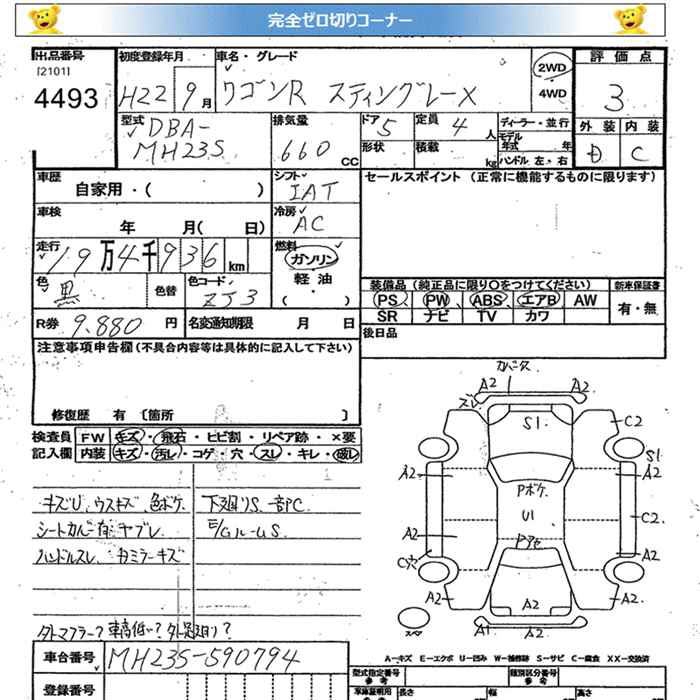 完全ゼロ切りコーナー
出品番号 初度登録年月 車名・グレード 評価点
[2101]
4493 H22 9月 ワゴンR スティングレーX 2WD 4WD 3
型式 排気量 ドア 定員 ディーラー・並行 外装 内装
DBA-MH23S 660cc 5 4人 モデル年式 年 D C
形状 積載 kg ハンドル 左・右
車歴 シフト セールスポイント(正常に機能するものに限ります)
自家用・( ) IAT
車検 冷房
年 月( 日) AC
走行 燃料
19万4千936km ガソリン
軽油
( )
色 色替 色コード 装備品(純正品に限り○をつけてください) 新車保証書
黒 ZJ3 PS PW ABS エアB AW 有・無
SR ナビ TV カワ
R券 9.880円 名変通知期限 月 日 後日品
注意事項申告欄(不具合内容等は具体的に記入して下さい)
修復歴 有〔箇所 〕
検査員記入欄 FW キズ・飛石・ヒビ割・リペア跡・×要
内装 キズ・汚レ・コゲ・穴・スレ・キレ・破レ
キズU、ウスキズ、色ボケ 下廻りS、一部C
シートカバー有 ヤブレ E/Gルーム S
ハンドルスレ
タトマフラー? 車高低い? タト足廻り?
車台番号 MH23S-590794
登録番号
カバータス
A2 A2
ズレ
S1 C2
S1
A2 A2
Pボケ
U1 C2
A2
Pアセ
A2
A2 A2 A2
スペア A1 A2
A-キズ E-エクボ U-凹み W-補修跡 S-サビ C-腐食 X-要交換 XX-交換済
型式指定番号 参考 類別区分番号 参考
車庫証明用 参考 長さ 幅 高さ